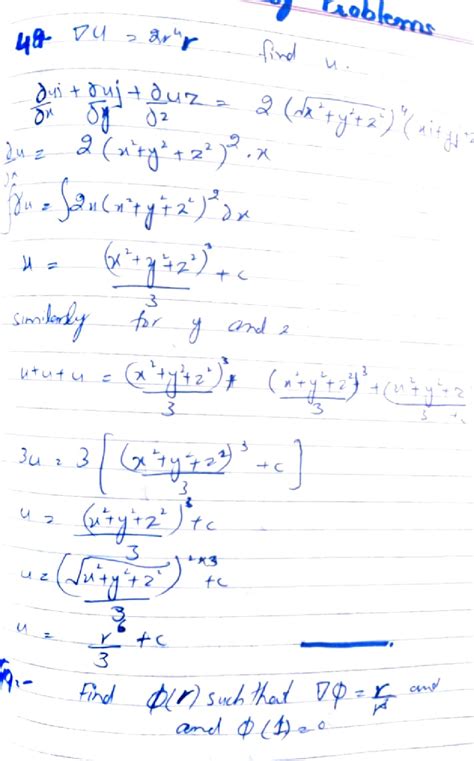 of Problems
48- ∇U = 2r⁴r find u.
∂ui/∂x + ∂uj/∂y + ∂uz/∂z = 2(√x²+y²+z²)⁴(xi+yj+z
∂u/∂x = 2(x²+y²+z²)².x
∫∂u = ∫2x(x²+y²+z²)²∂x
u = (x²+y²+z²)³/3 + c
similarly for y and z
u+u+u = (x²+y²+z²)³/3 + (x²+y²+z²)³/3 + (x²+y²+z
3u = 3[(x²+y²+z²)³/3 + c]
u = (x²+y²+z²)³/3 + c
u = (√x²+y²+z²)²ˣ³/3 + c
u = r⁶/3 + c
Find φ(r) such that ∇φ = r/ and
and φ(1) = 0